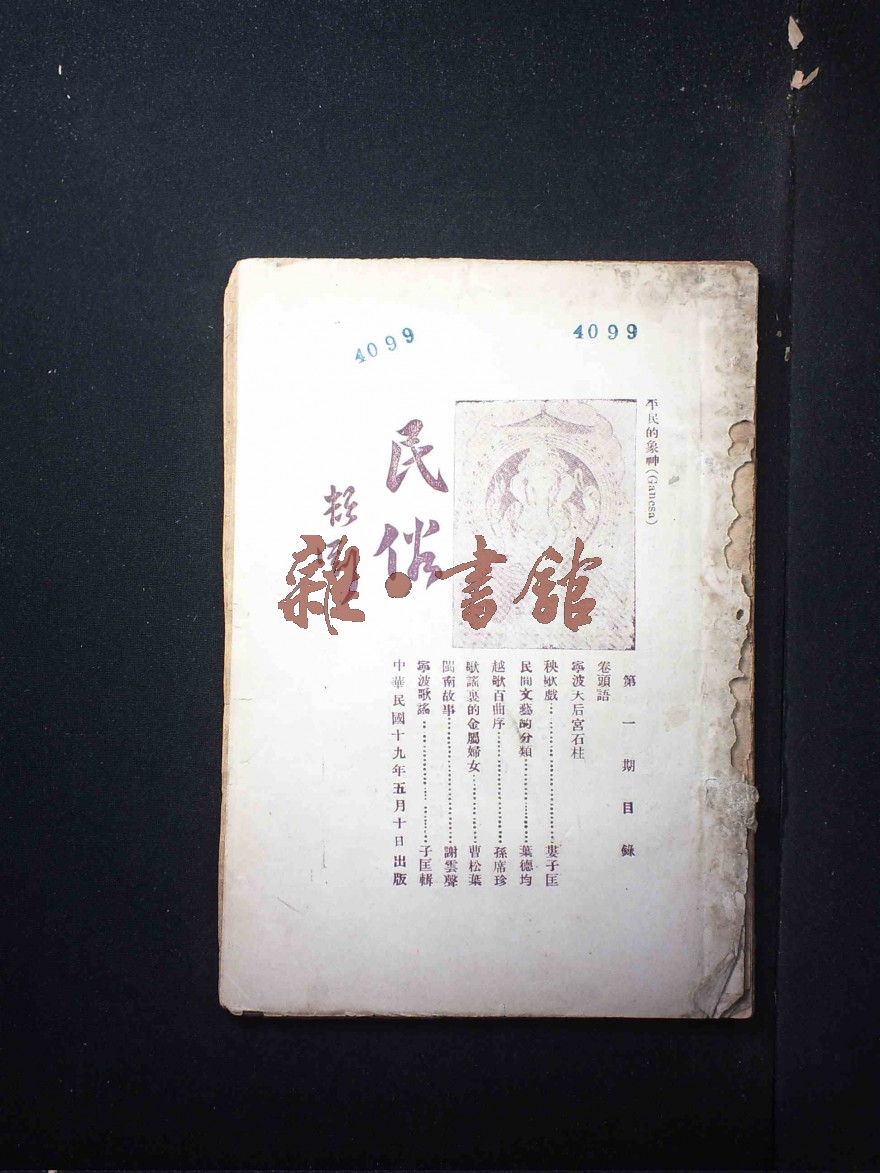 4099
4099
平民的象神(Ganesa)
民俗
第一期目錄
卷頭語
寧波天后宮石柱
秧歌戲……婁子匡
民間文藝的分類……葉德均
越歌百曲序……孫席珍
歌謠裏的金屬婦女……曹松葉
閩南故事……謝雲聲
寧波歌謠……子匡輯
中華民國十九年五月十日出版
雜·書館